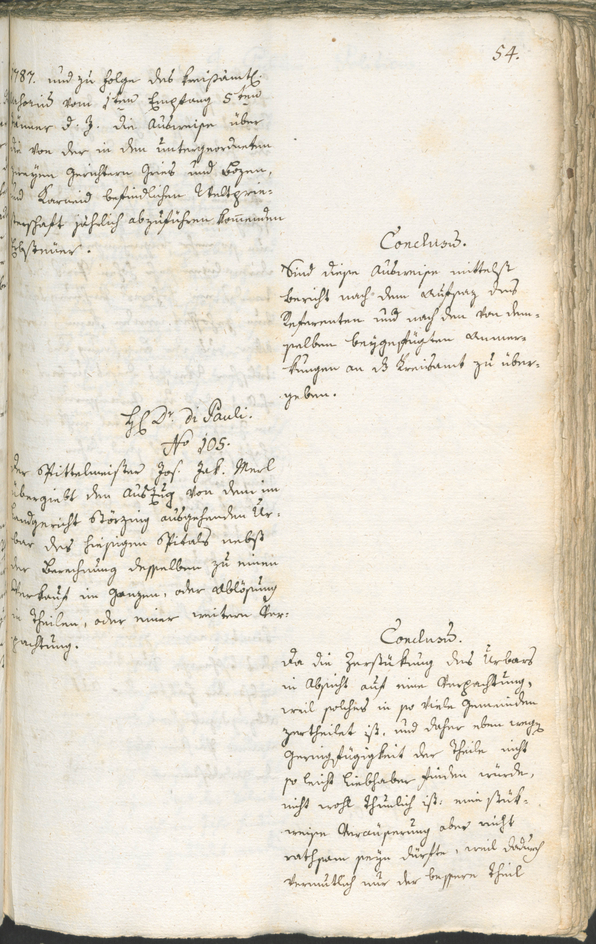 54.
1787. und zu Folge des kreisämtl.
vom 1ten Empfang 5ten
Jänner d. J. die Ausweise über
die von der in den untergeordneten
Gerichtern Gries und Bozen,
und Karneid befindlichen Weltprie-
sterschaft jährlich abzuführen kommenden
Conclusum.
Sind diese Ausweise mittelst
Bericht nach dem Aufsaz des
Referenten und nach den von dem-
selben beygefügten Anmer-
kungen an das Kreisamt zu über-
geben.
H. Dr. di Pauli.
No 105.
Der Spittelmeister Jos. Jak. Merl
übergiebt den Auszug von dem im
Landgericht Störzing ausgehenden Ur-
bar des hiesigen Spitals nebst
der Berechnung desselben zu einem
Verkauf im Ganzen, oder Ablösung
in Theilen, oder einer weitern Ver-
pachtung.
Conclusum.
Da die Zerstükung des Urbars
in Absicht auf eine Verpachtung,
weil solches in so viele Gemeinden
zertheilet ist, und daher eben wegen
Geringfügigkeit der Theile nicht
so leicht Liebhaber finden würde,
nicht wohl thunlich ist: eine stük-
weise Veräußerung aber nicht
rathsam seyn dürfte, weil dadurch
vermutlich nur der bessere Theil